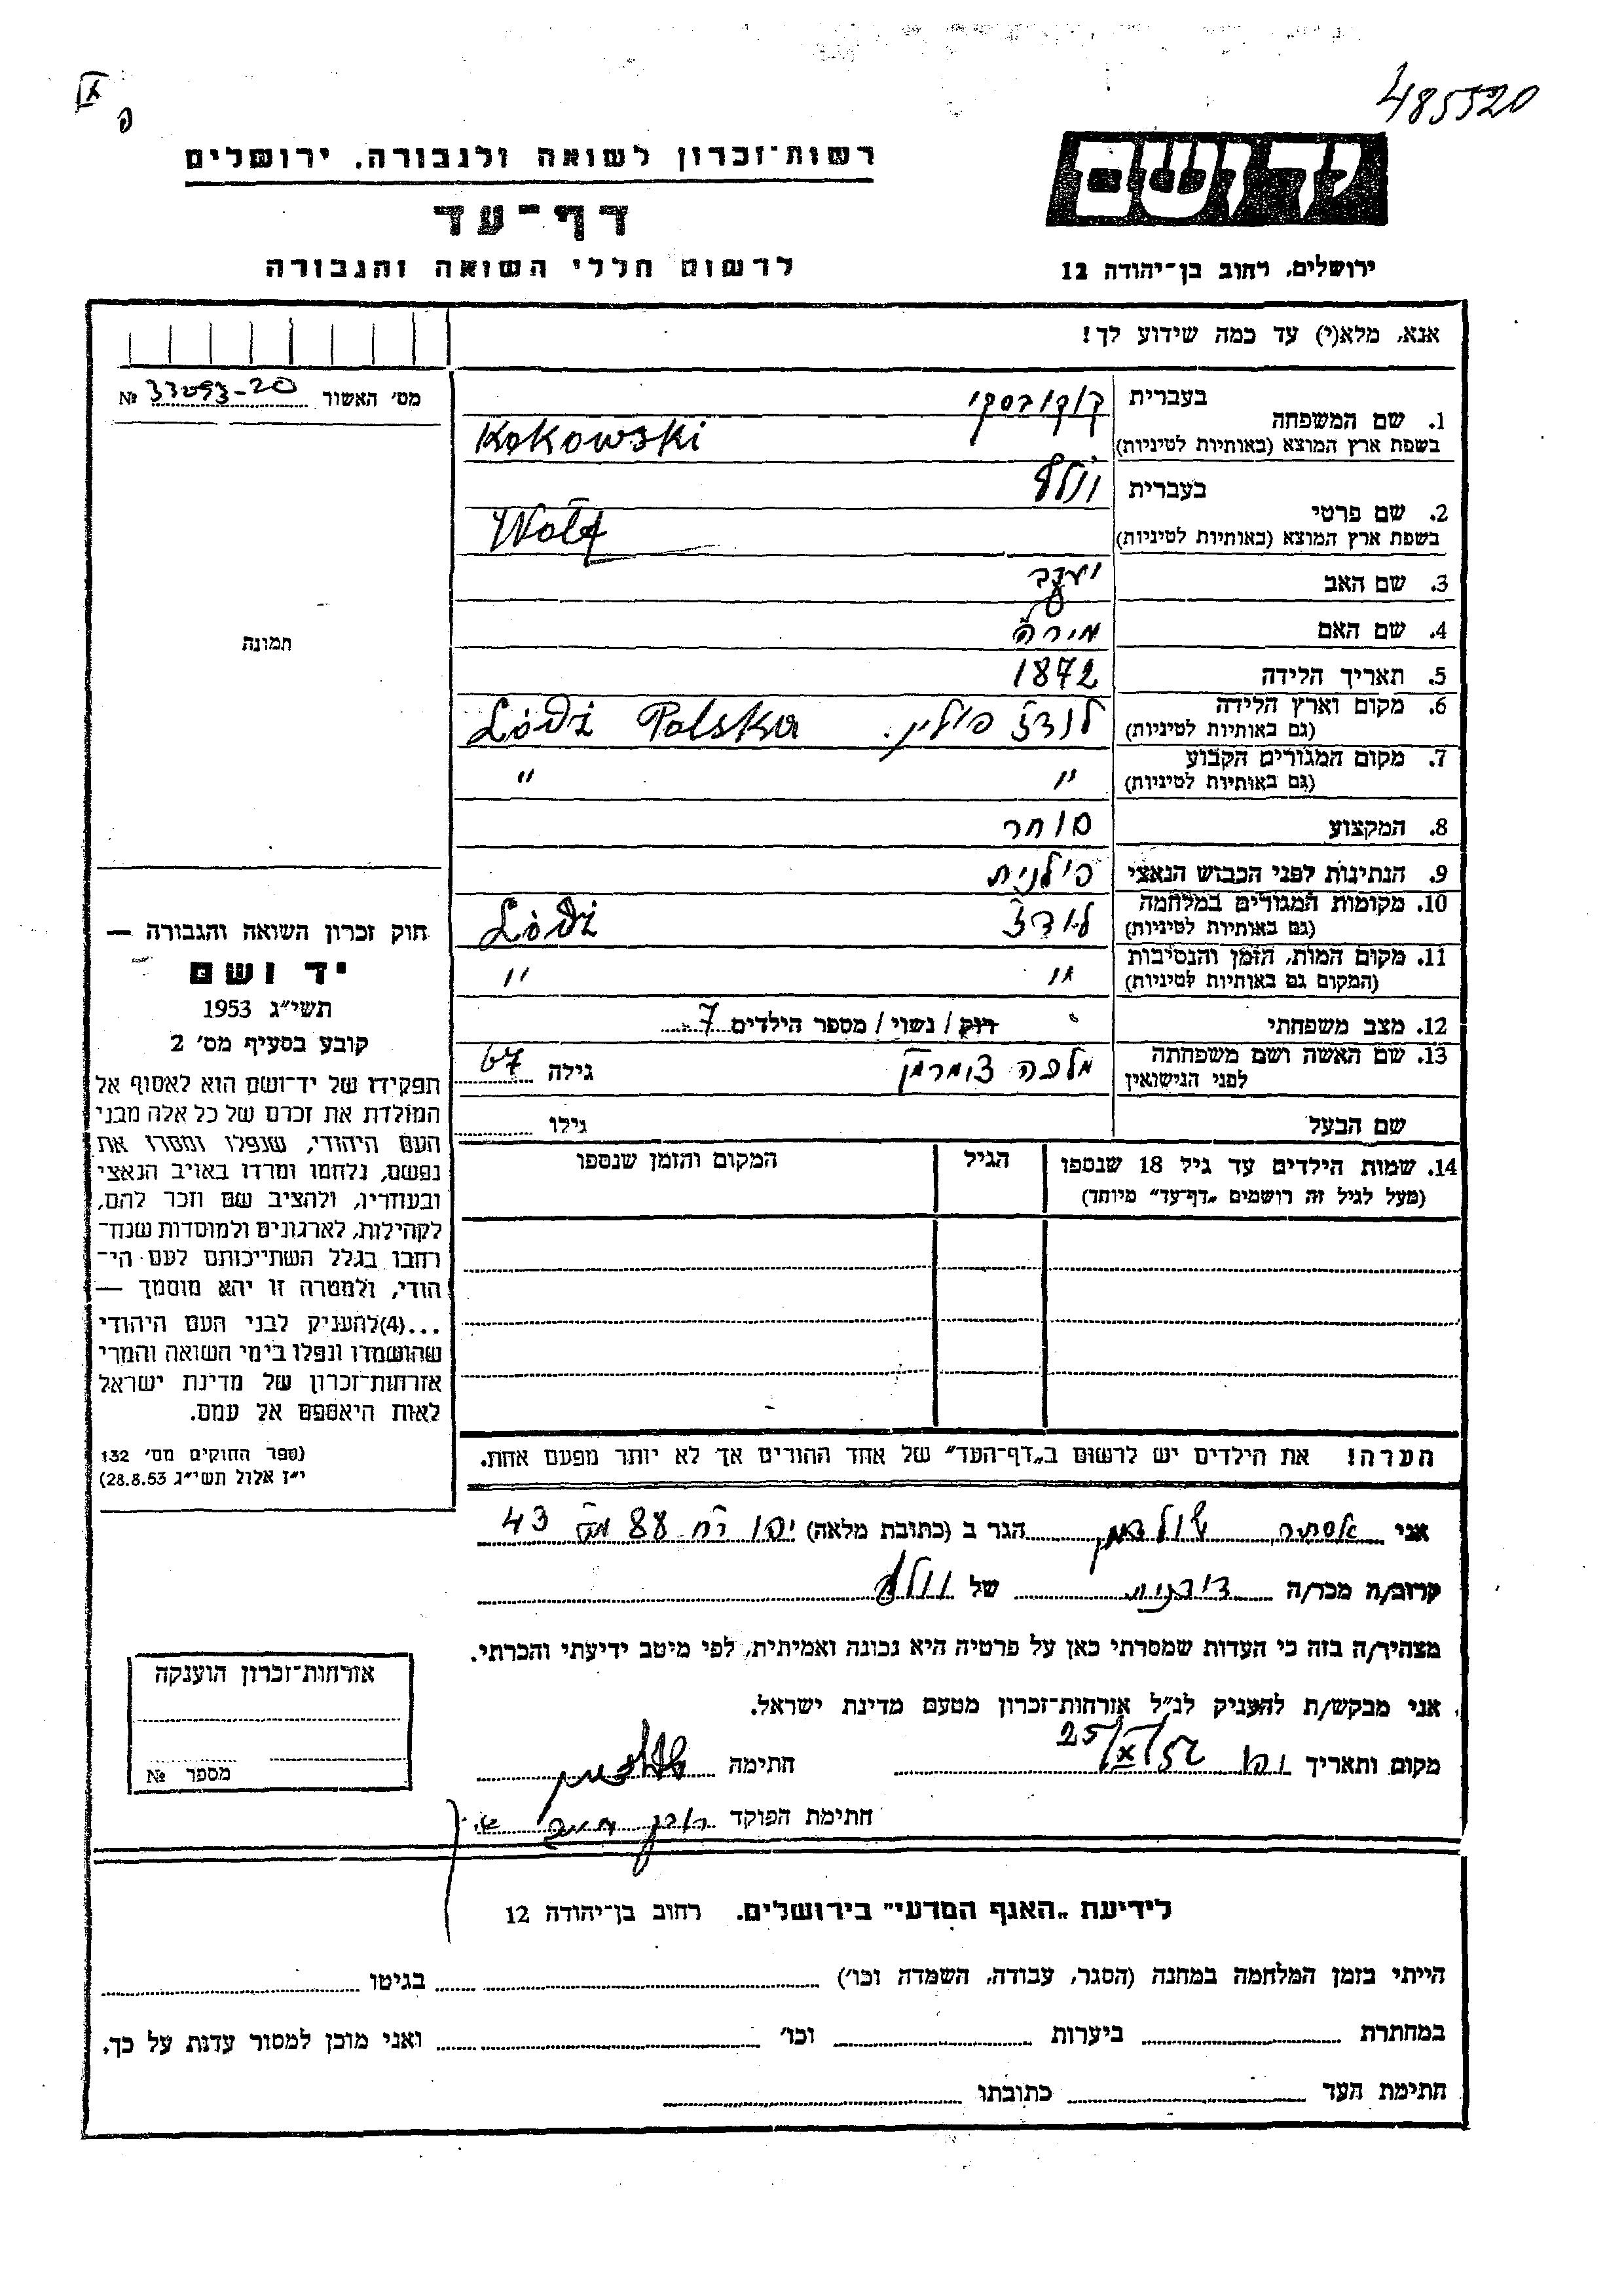 485520
רשות־זכרון לשואה ולגבורה, ירושלים
דף־עד
לרשום חללי השואה והגבורה
יד ושם
ירושלים, רחוב בן־יהודה 12
אנא, מלא(י) עד כמה שידוע לך!
מס׳ האשור 33093-20 №
תמונה
1. שם המשפחה
בעברית קוקובסקי
בשפת ארץ המוצא (באותיות לטיניות) Kokowski
2. שם פרטי
בעברית וולף
בשפת ארץ המוצא (באותיות לטיניות) Wolf
3. שם האב יעקב
4. שם האם מירה
5. תאריך הלידה 1872
6. מקום וארץ הלידה
(גם באותיות לטיניות) לודז׳ פולין. Polska Lódź
7. מקום המגורים הקבוע
(גם באותיות לטיניות) " "
8. המקצוע סוחר
9. הנתינות לפני הכבוש הנאצי פולנית
10. מקומות המגורים במלחמה
(גם באותיות לטיניות) לודז׳ Lódź
11. מקום המות, הזמן והנסיבות
(המקום גם באותיות לטיניות) " "
12. מצב משפחתי רוק / נשוי / מספר הילדים 7
13. שם האשה ושם משפחתה
לפני הנישואין מלכה צוקרמן גילה 67
שם הבעל גילו
14. שמות הילדים עד גיל 18 שנספו
(מעל לגיל זה רושמים „דף־עד״ מיוחד)
הגיל
המקום והזמן שנספו
הערה! את הילדים יש לרשום ב„דף־העד״ של אחד ההורים אך לא יותר מפעם אחת.
חוק זכרון השואה והגבורה —
יד ושם
תשי״ג 1953
קובע בסעיף מס׳ 2
תפקידו של יד־ושם הוא לאסוף אל
המולדת את זכרם של כל אלה מבני
העם היהודי, שנפלו ומסרו את
נפשם, נלחמו ומרדו באויב הנאצי
ובעוזריו, ולהציב שם וזכר להם,
לקהילות, לארגונים ולמוסדות שנח־
רחבו בגלל השתייכותם לעם הי־
הודי, ולמטרה זו יהא מוסמך —
...(4)להעניק לבני העם היהודי
שהושמדו ונפלו בימי השואה והמרי
אזרחות־זכרון של מדינת ישראל
לאות היאספם אל עמם.
(ספר החוקים מס׳ 132
י״ז אלול תשי״ג 28.8.53)
אני אסתר הגר ב (כתובת מלאה) יפו רח 88 מס 43
קרוב/ה מכר/ה של וולף
מצהיר/ה בזה כי העדות שמסרתי כאן על פרטיה היא נכונה ואמיתית, לפי מיטב ידיעתי והכרתי.
אני מבקש/ת להעניק לנ״ל אזרחות־זכרון מטעם מדינת ישראל.
מקום ותאריך יפו 25/X/56 חתימה
חתימת הפוקד
אזרחות־זכרון הוענקה
מספר №
לידיעת „האגף המדעי״ בירושלים. רחוב בן־יהודה 12
הייתי בזמן המלחמה במחנה (הסגר, עבודה, השמדה וכו׳) בגיטו
במחתרת ביערות וכו׳ ואני מוכן למסור עדות על כך.
חתימת העד כתובתו